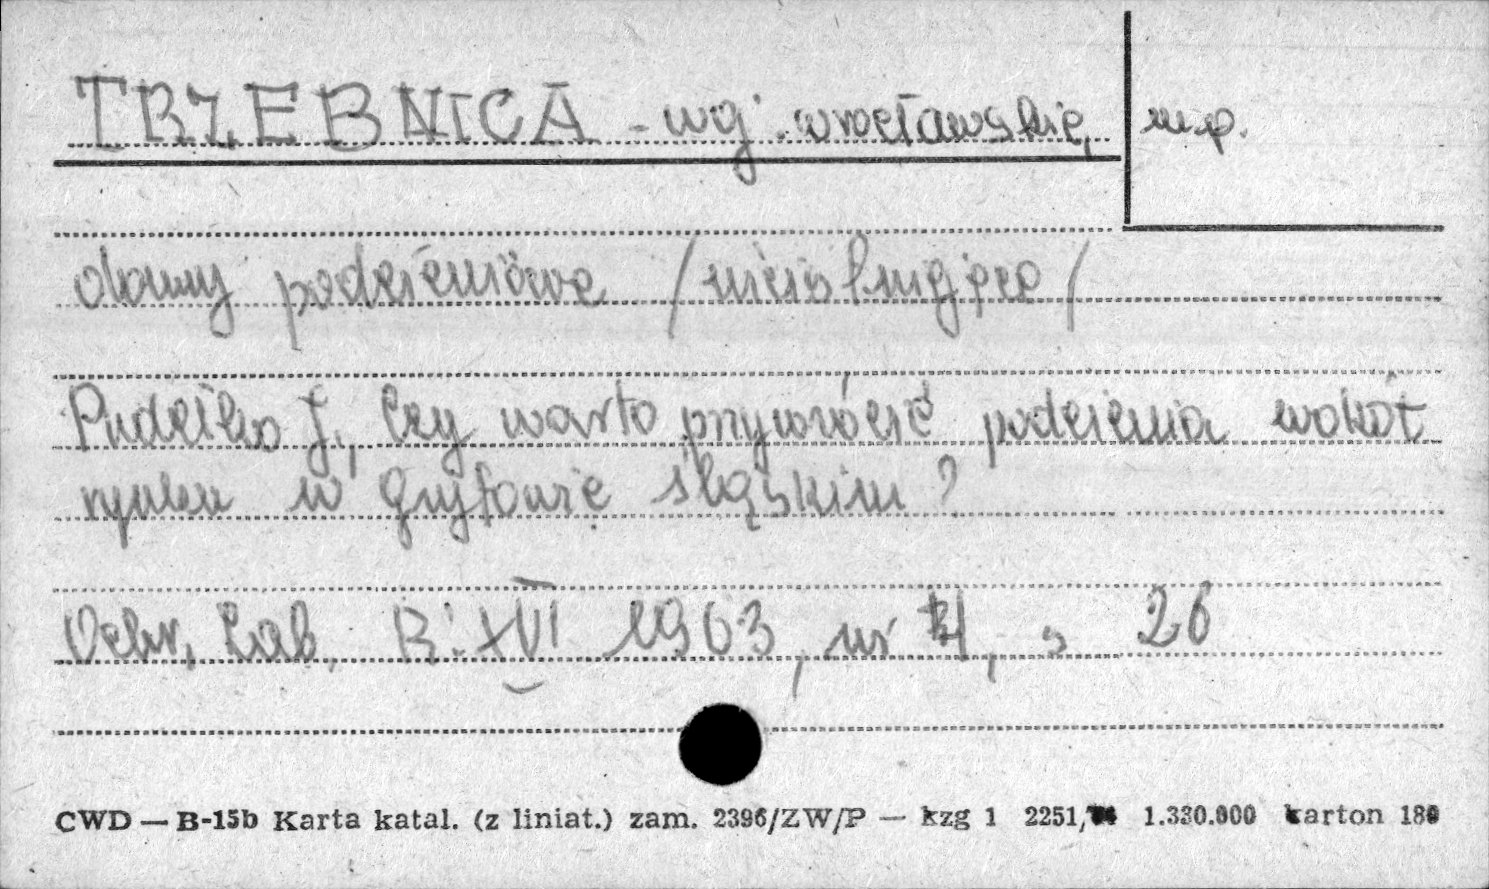 TRZEBNICA - woj. wrocławskie, m.p.
domy podcieniowe /nieistniejące/
Pudełko J., Czy warto przywrócić podcienia wokół
rynku w Gryfowie śląskim?
Ochr. Zab. R. XVI 1963, nr 4, s 26
CWD — B-15b Karta katal. (z liniat.) zam. 2396/ZW/P — kzg 1 2251, 1.330.000 karton 180